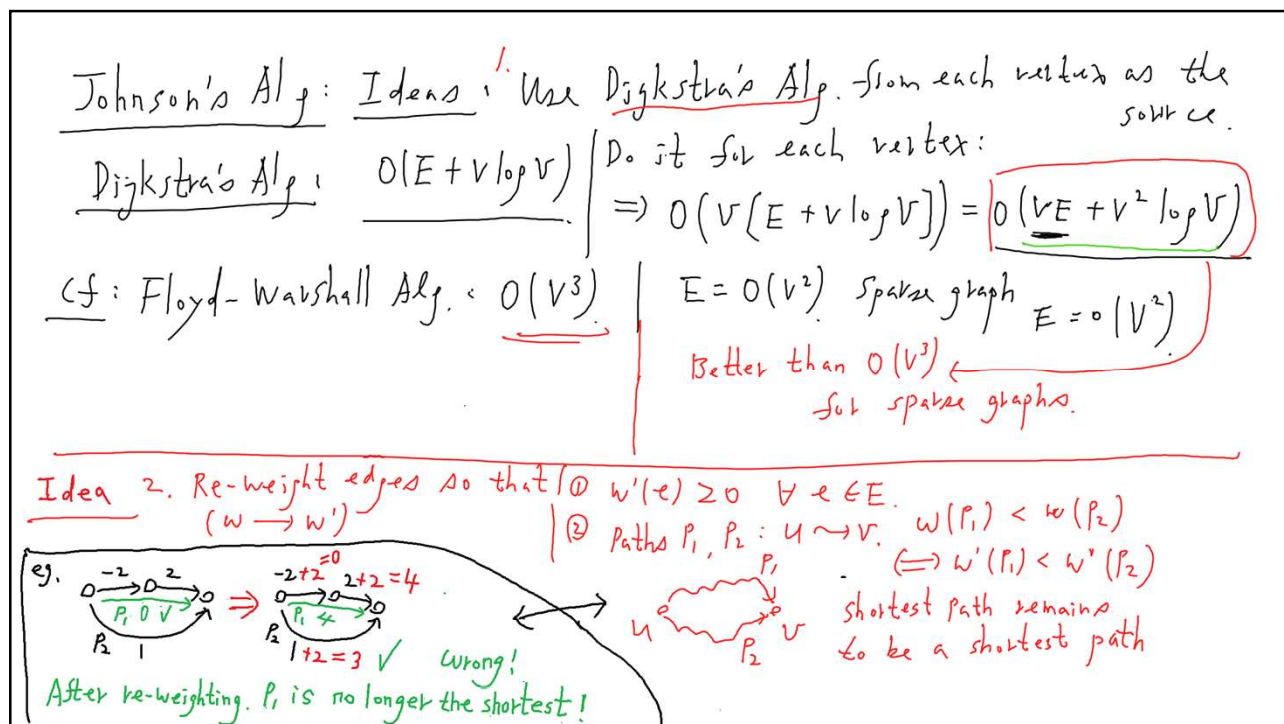 Johnson's Alg: Ideas: 1. Use Dijkstra's Alg. from each vertex as the source.
Dijkstra's Alg: O(E + V log V)
Do it for each vertex:
⇒ O(V[E + V log V]) = O(VE + V² log V)
cf: Floyd-Warshall Alg.: O(V³)
E = O(V²) sparse graph E = o(V²)
Better than O(V³)
for sparse graphs.
Idea 2. Re-weight edges so that
(w → w')
① w'(e) ≥ 0 ∀ e ∈ E.
② Paths P₁, P₂ : u ⇝ v. w(P₁) < w(P₂)
⇔ w'(P₁) < w'(P₂)
shortest path remains
to be a shortest path
P₁
u v
P₂
eg.
-2 2
P₁ 0 ✓
P₂ 1
⇒
-2+2=0 2+2=4
P₁ 4
P₂ 1+2=3 ✓ wrong!
After re-weighting. P₁ is no longer the shortest!